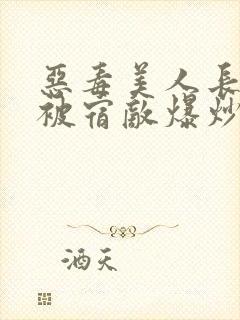 惡毒美人長
被宿敵爆炒
酒天